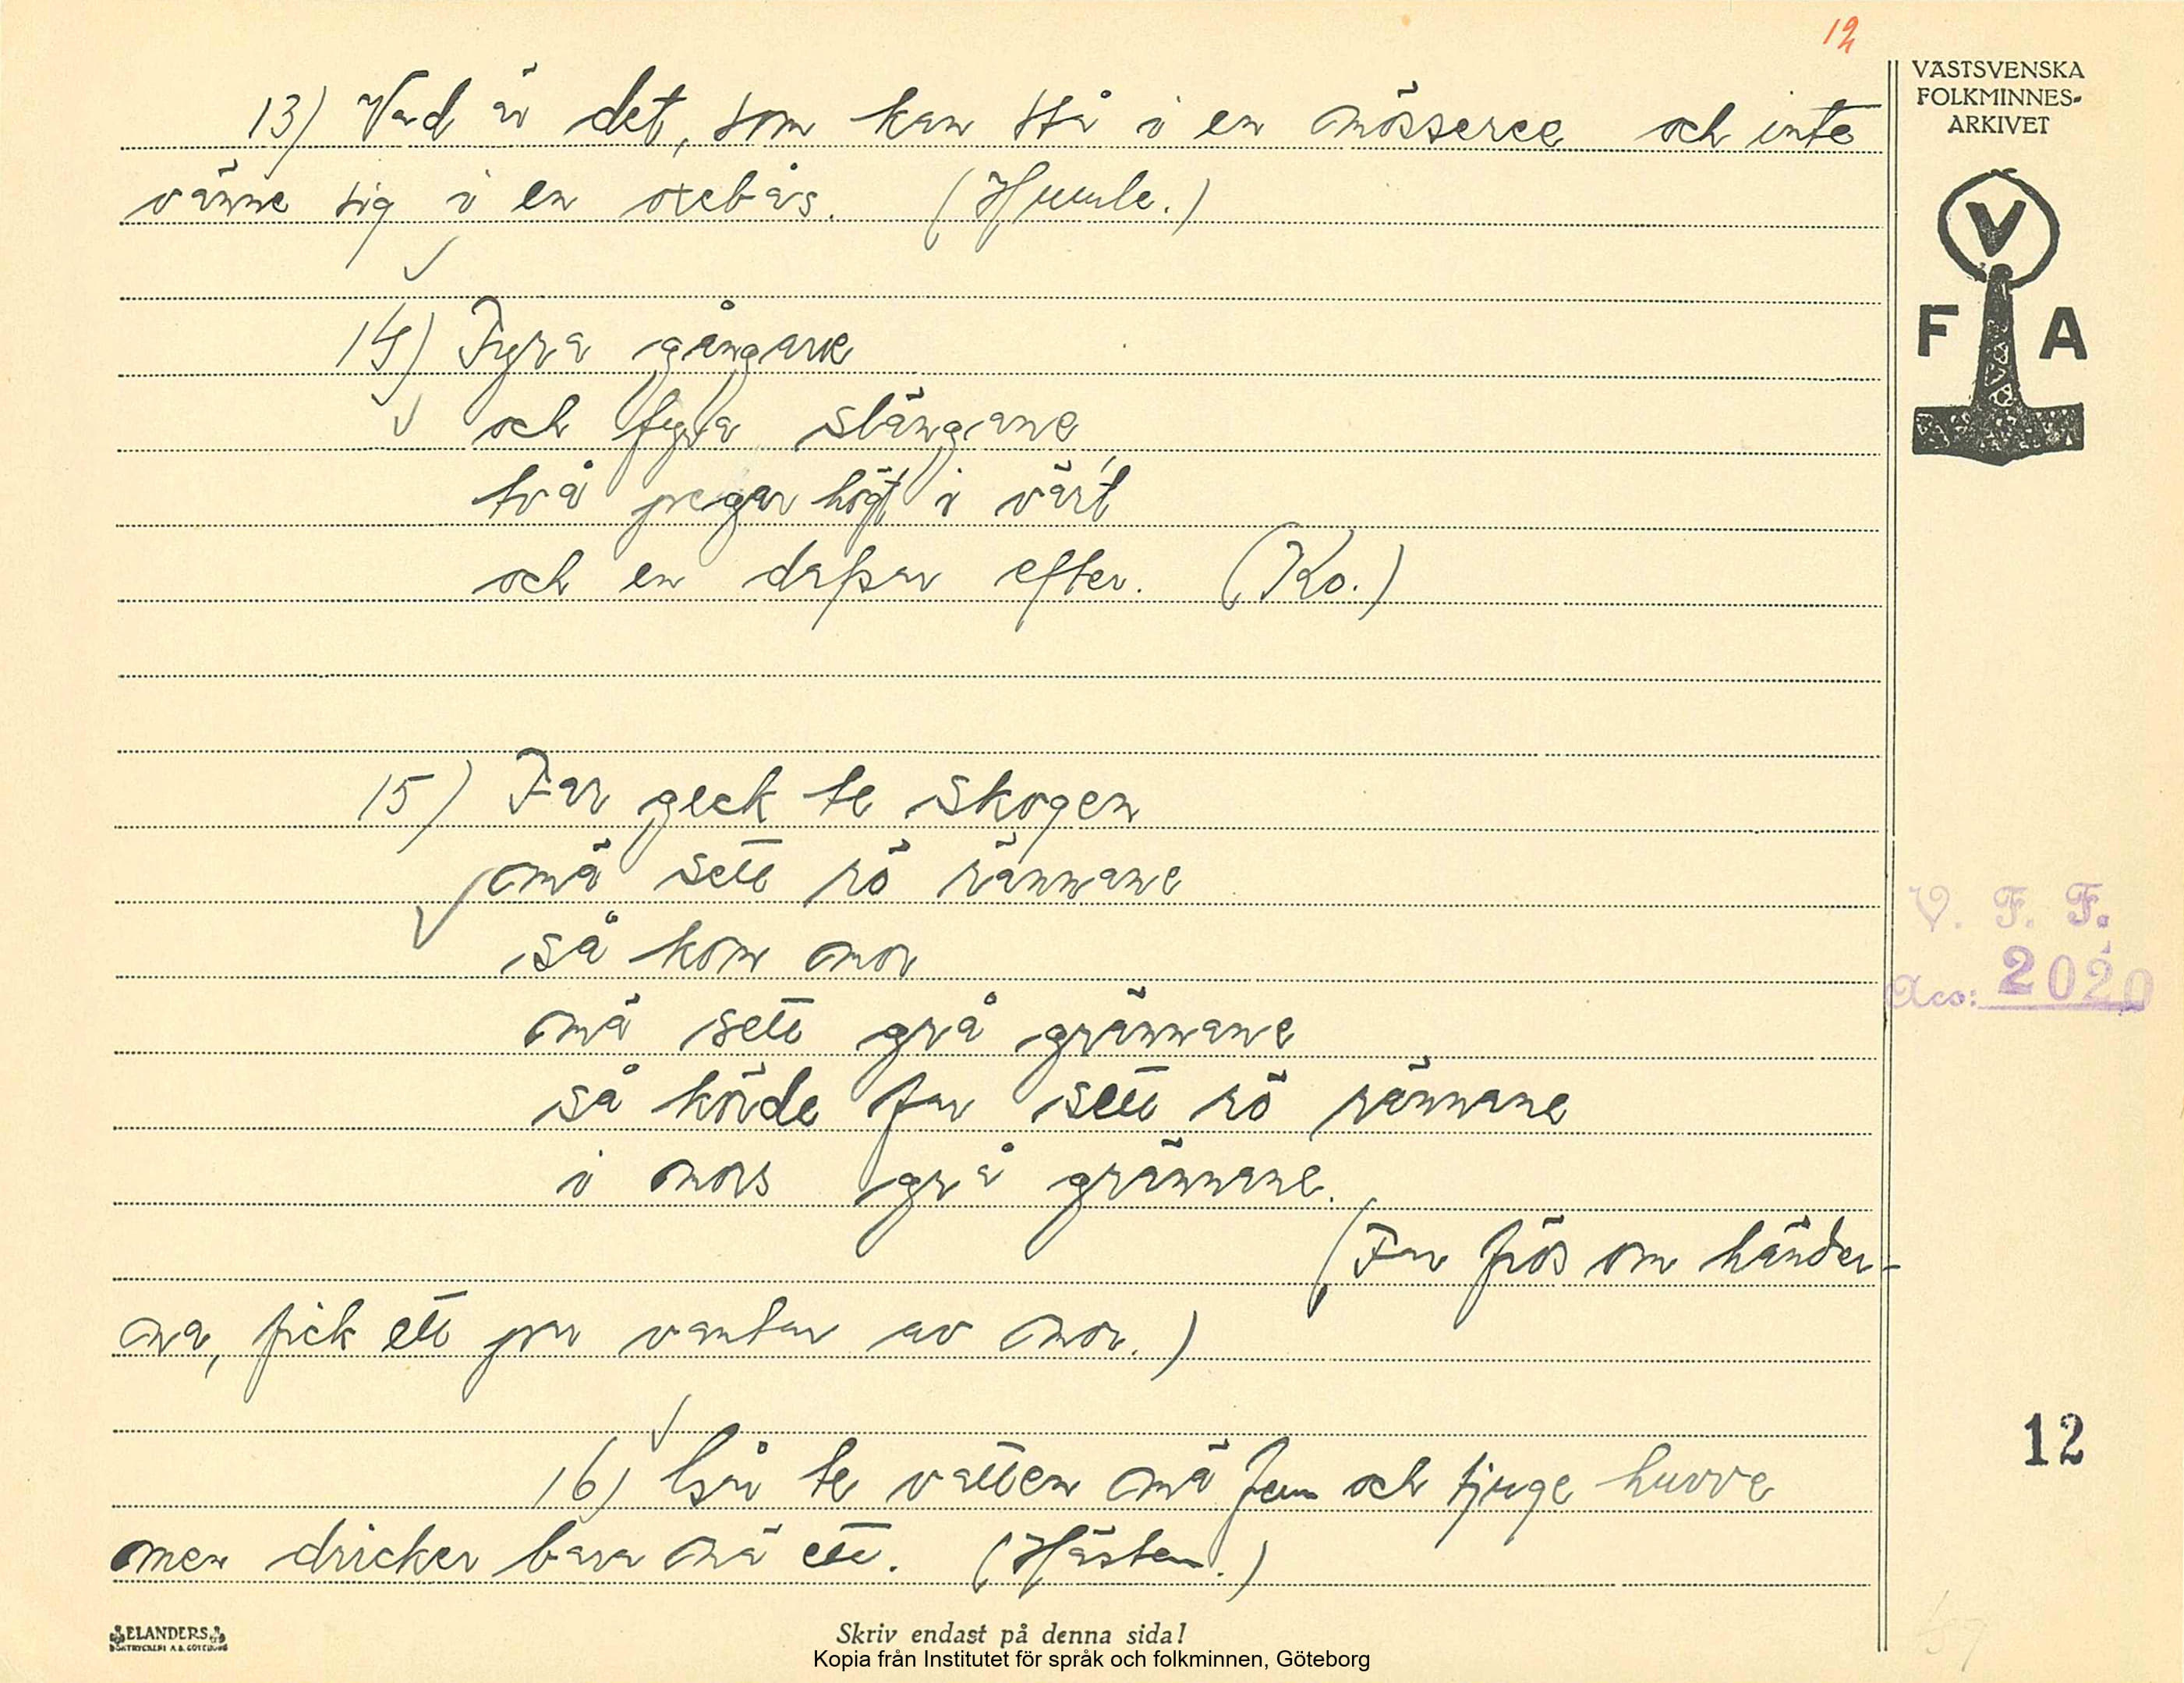 12
VÄSTSVENSKA
FOLKMINNES-
ARKIVET
V
F A
13) Vad är det, som kan stå i en mösseree och inte
vänne sig i en oxebås. (Humle.)
14) Fyra gångare
och fyra slängane
två pegar högt i värt
och en dafsar efter. (Ko.)
15) Far geck te skogen
mä sett rö rännane
så kom mor
mä sett grå grännane
så körde far sett rö rännane
i mors grå grännane.
(Far frös om händer-
na, fick ett par vantar av mor.)
16) Går te vatten mä fem och tjuge huvve
men dricker bara mä ett. (Hästen.)
V. F. F.
Acc: 2020
12
ELANDERS
BOKTRYCKERI A.B. GÖTEBORG
Skriv endast på denna sida!
Kopia från Institutet för språk och folkminnen, Göteborg